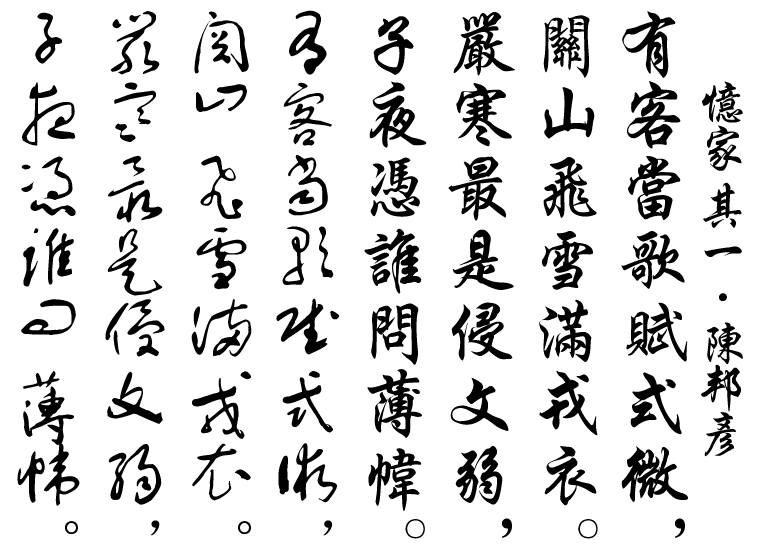 憶家其一・陳邦彥
有客當歌賦式微，
關山飛雪滿戎衣。
嚴寒最是侵文弱，
子夜憑誰問薄幃。
有客當歌賦式微，
關山飛雪滿戎衣。
嚴寒最是侵文弱，
子夜憑誰問薄幃。